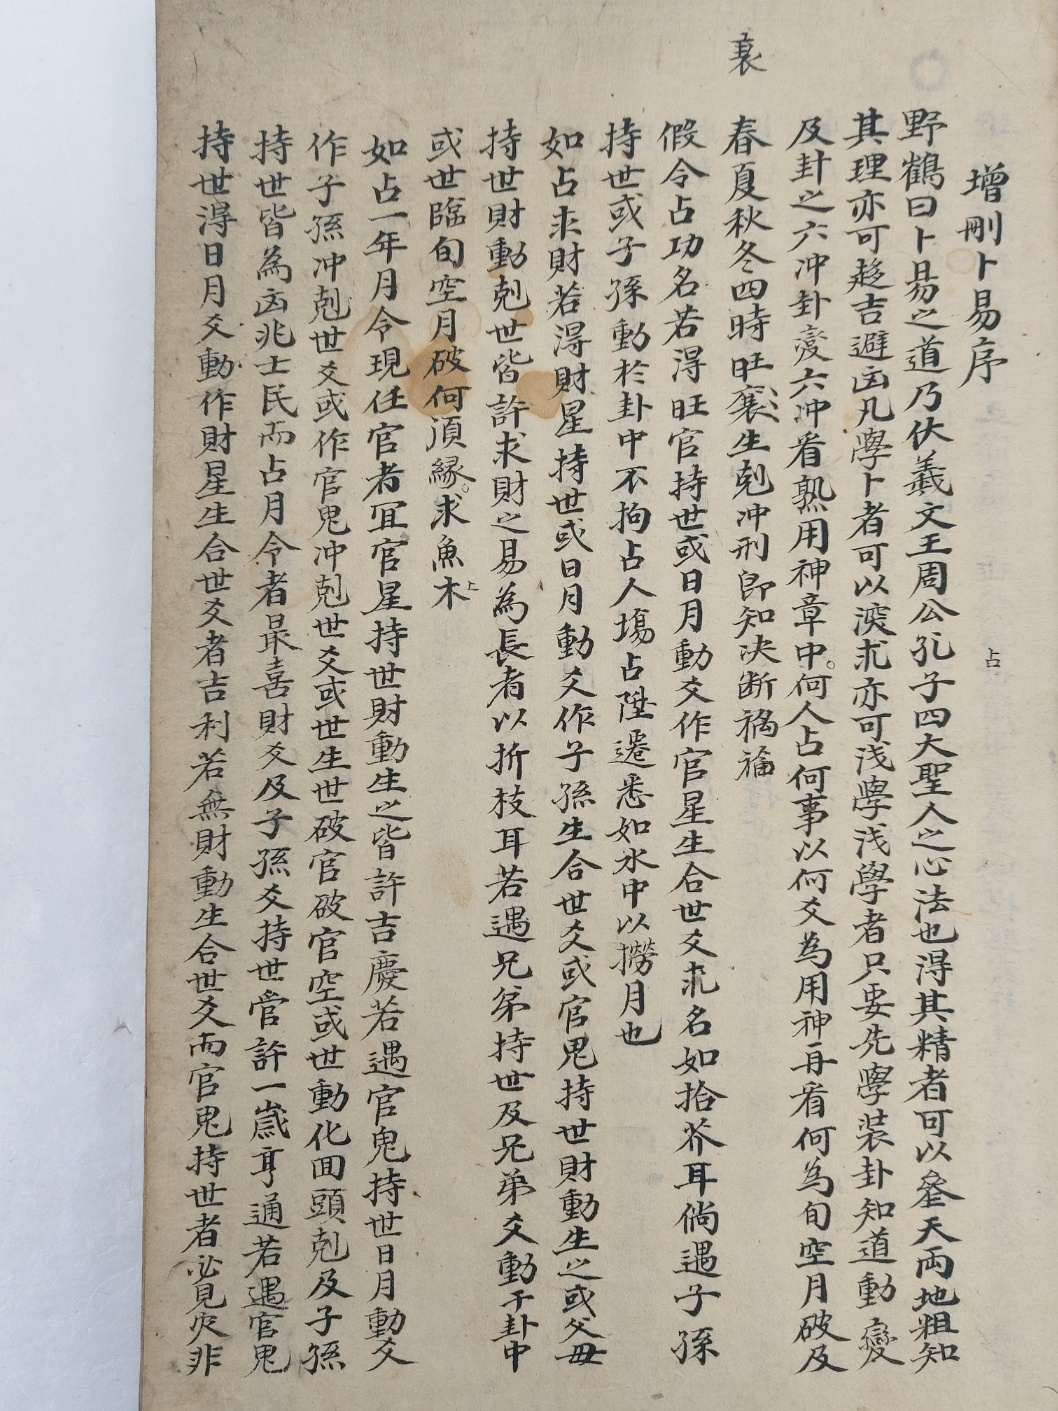 增刪卜易序
野鶴曰卜易之道乃伏羲文王周公孔子四大聖人之心法也得其精者可以叅天両地粗知
其理亦可趍吉避凶凡學卜者可以深求亦可浅學浅學者只要先學装卦知道動變
及卦之六冲卦变六冲看熟用神章中何人占何事以何爻為用神再看何為旬空月破及
衰
春夏秋冬四時旺衰生剋冲刑即知决断禍福
假令占功名若得旺官持世或日月動爻作官星生合世爻求名如拾芥耳倘遇子孫
持世或子孫動於卦中不拘占人塲占陞遷悉如水中以撈月也
占
如占求財若得財星持世或日月動爻作子孫生合世爻或官鬼持世財動生之或父毋
持世財動剋世皆許求財之易為長者以折枝耳若遇兄弟持世及兄弟爻動于卦中
或世臨旬空月破何湏縁求魚木
上
如占一年月令現任官者冝官星持世財動生之皆許吉慶若遇官鬼持世日月動爻
作子孫冲剋世爻或作官鬼冲剋世爻或世生世破官破官空或世動化囬頭剋及子孫
持世皆為凶兆士民而占月令者最喜財爻及子孫爻持世管許一歲亨通若遇官鬼
持世得日月爻動作財星生合世爻者吉利若無財動生合世爻而官鬼持世者必見灾非